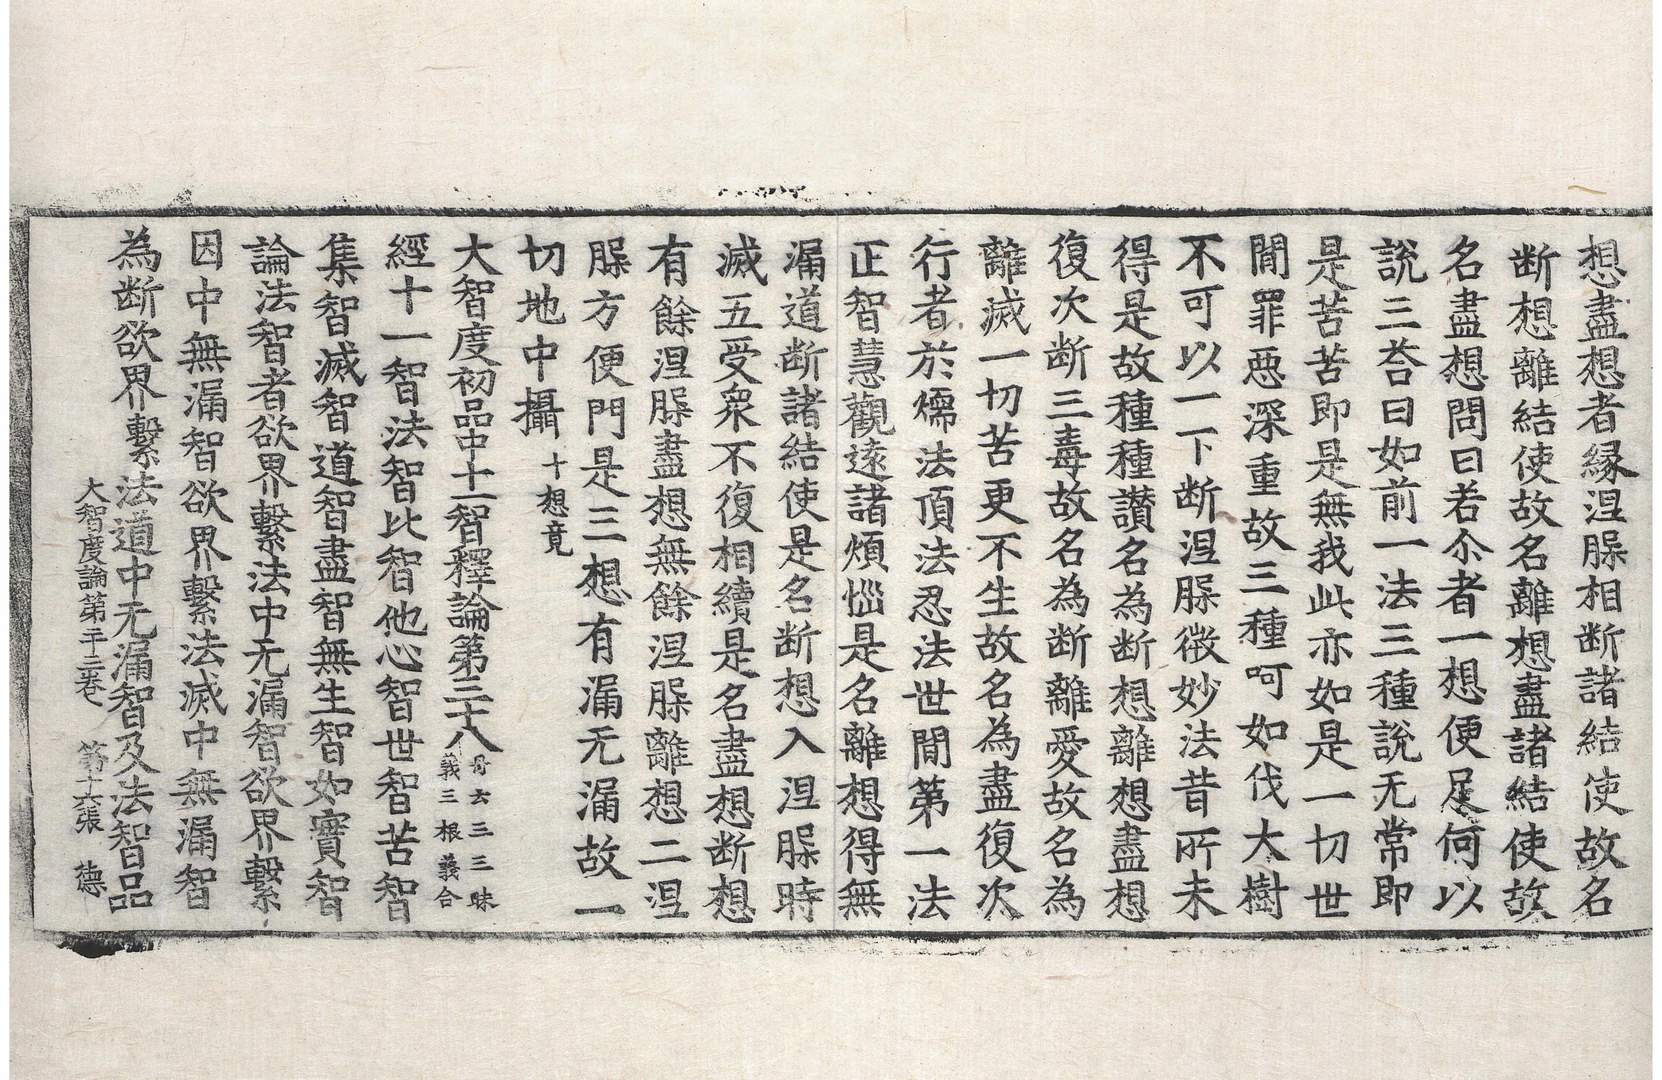 想盡想者緣涅脲相断諸結使故名
断想離結使故名離想盡諸結使故
名盡想問曰若尒者一想便足何以
說三荅曰如前一法三種說无常即
是苦苦即是無我此亦如是一切世
閒罪惡深重故三種呵如伐大樹
不可以一下断涅脲微妙法昔所未
得是故種種讃名為断想離想盡想
復次断三毒故名為断離愛故名為
離滅一切苦更不生故名為盡復次
行者於煗法頂法忍法世閒第一法
正智慧觀遠諸煩惱是名離想得無
漏道断諸結使是名断想入涅脲時
滅五受衆不復相續是名盡想断想
有餘涅脲盡想無餘涅脲離想二涅
脲方便門是三想有漏无漏故一
切地中攝十想竟
大智度初品中十一智釋論第三十八丹云三三昧義三根義合
經十一智法智比智他心智世智苦智
集智滅智道智盡智無生智如實智
論法智者欲界繫法中无漏智欲界繫
因中無漏智欲界繫法滅中無漏智
為断欲界繫法道中无漏智及法智品
大智度論第二十三卷 第十六張 德